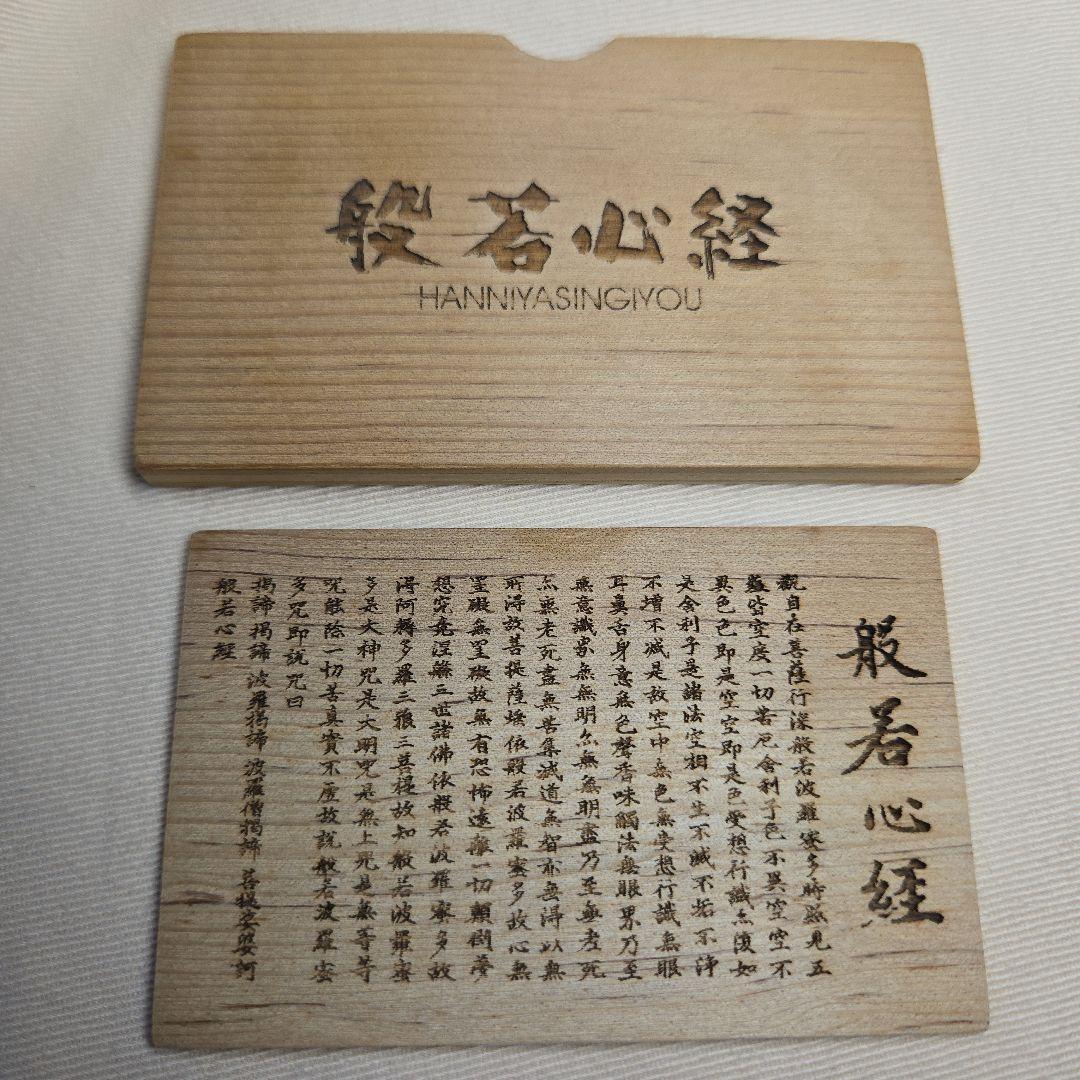 般若心経
HANNIYASINGIYOU
般若心経
觀自在菩薩行深般若波羅蜜多時照見五
蘊皆空度一切苦厄舍利子色不異空空不
異色色即是空空即是色受想行識亦復如
是舍利子是諸法空相不生不滅不垢不淨
不增不減是故空中無色無受想行識無眼
耳鼻舌身意無色聲香味觸法無眼界乃至
無意識界無無明亦無無明盡乃至無老死
亦無老死盡無苦集滅道無智亦無得以無
所得故菩提薩埵依般若波羅蜜多故心無
罣礙無罣礙故無有恐怖遠離一切顛倒夢
想究竟涅槃三世諸佛依般若波羅蜜多故
得阿耨多羅三藐三菩提故知般若波羅蜜
多是大神咒是大明咒是無上咒是無等等
咒能除一切苦真實不虛故說般若波羅蜜
多咒即說咒曰
揭諦揭諦 波羅揭諦 波羅僧揭諦 菩提娑婆訶
般若心經